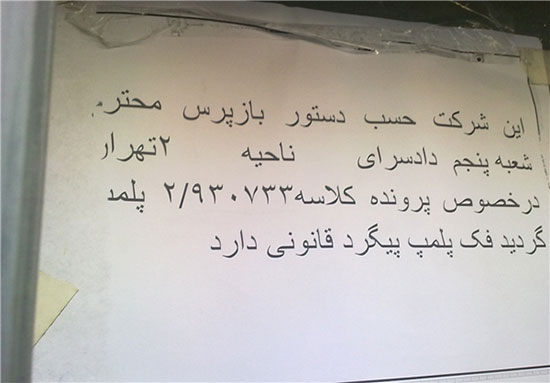 این شرکت حسب دستور بازپرس محتر
شعبه پنجم دادسرای ناحیه ۲تهرار
درخصوص پرونده کلاسه۲/۹۳۰۷۳۳ پلمد
گردید فک پلمپ پیگرد قانونی دارد